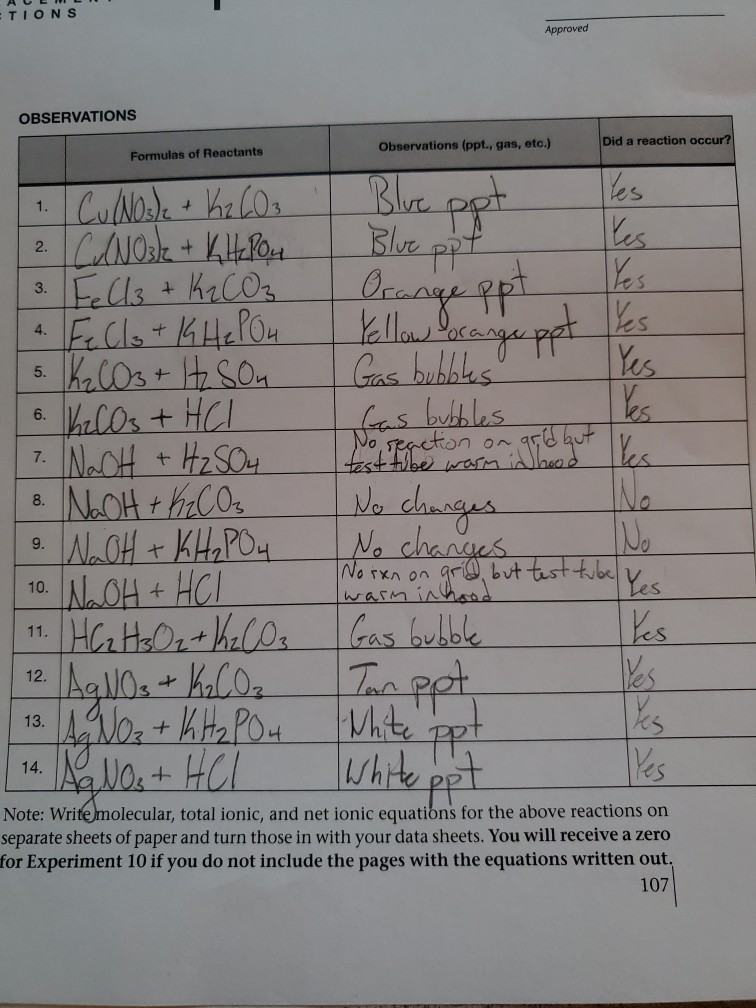 TIONS
Approved
OBSERVATIONS
Formulas of Reactants Observations (ppt., gas, etc.) Did a reaction occur?
1. Cu(NO3)2 + K2CO3 Blue ppt Yes
2. Cu(NO3)2 + KH2PO4 Blue ppt Yes
3. FeCl3 + K2CO3 Orange ppt Yes
4. FeCl3 + KH2PO4 Yellow orange ppt Yes
5. K2CO3 + H2SO4 Gas bubbles Yes
6. K2CO3 + HCl Gas bubbles Yes
7. NaOH + H2SO4 No reaction on grid but test tube warm in hood Yes
8. NaOH + K2CO3 No changes No
9. NaOH + KH2PO4 No changes No
10. NaOH + HCl No rxn on grid, but test tube warm in hood Yes
11. HC2H3O2 + K2CO3 Gas bubble Yes
12. AgNO3 + K2CO3 Tan ppt Yes
13. AgNO3 + KH2PO4 White ppt Yes
14. AgNO3 + HCl White ppt Yes
Note: Write molecular, total ionic, and net ionic equations for the above reactions on
separate sheets of paper and turn those in with your data sheets. You will receive a zero
for Experiment 10 if you do not include the pages with the equations written out.
107